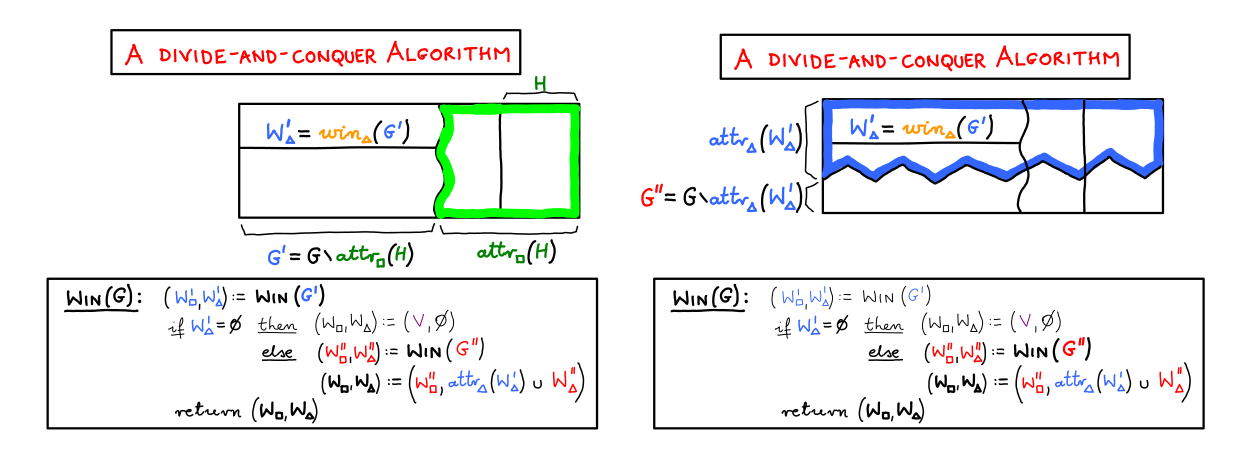 A DIVIDE-AND-CONQUER ALGORITHM
H
W'△ = win△(G')
G' = G∖attr□(H)
attr□(H)
WIN(G): (W'□,W'△) := WIN(G')
if W'△ = ∅ then (W□,W△) := (V,∅)
else (W''□,W''△) := WIN(G'')
(W□,W△) := (W''□, attr△(W'△) ∪ W''△)
return (W□,W△)
A DIVIDE-AND-CONQUER ALGORITHM
attr△(W'△)
W'△ = win△(G')
G'' = G∖attr△(W'△)
WIN(G): (W'□,W'△) := WIN(G')
if W'△ = ∅ then (W□,W△) := (V,∅)
else (W''□,W''△) := WIN(G'')
(W□,W△) := (W''□, attr△(W'△) ∪ W''△)
return (W□,W△)